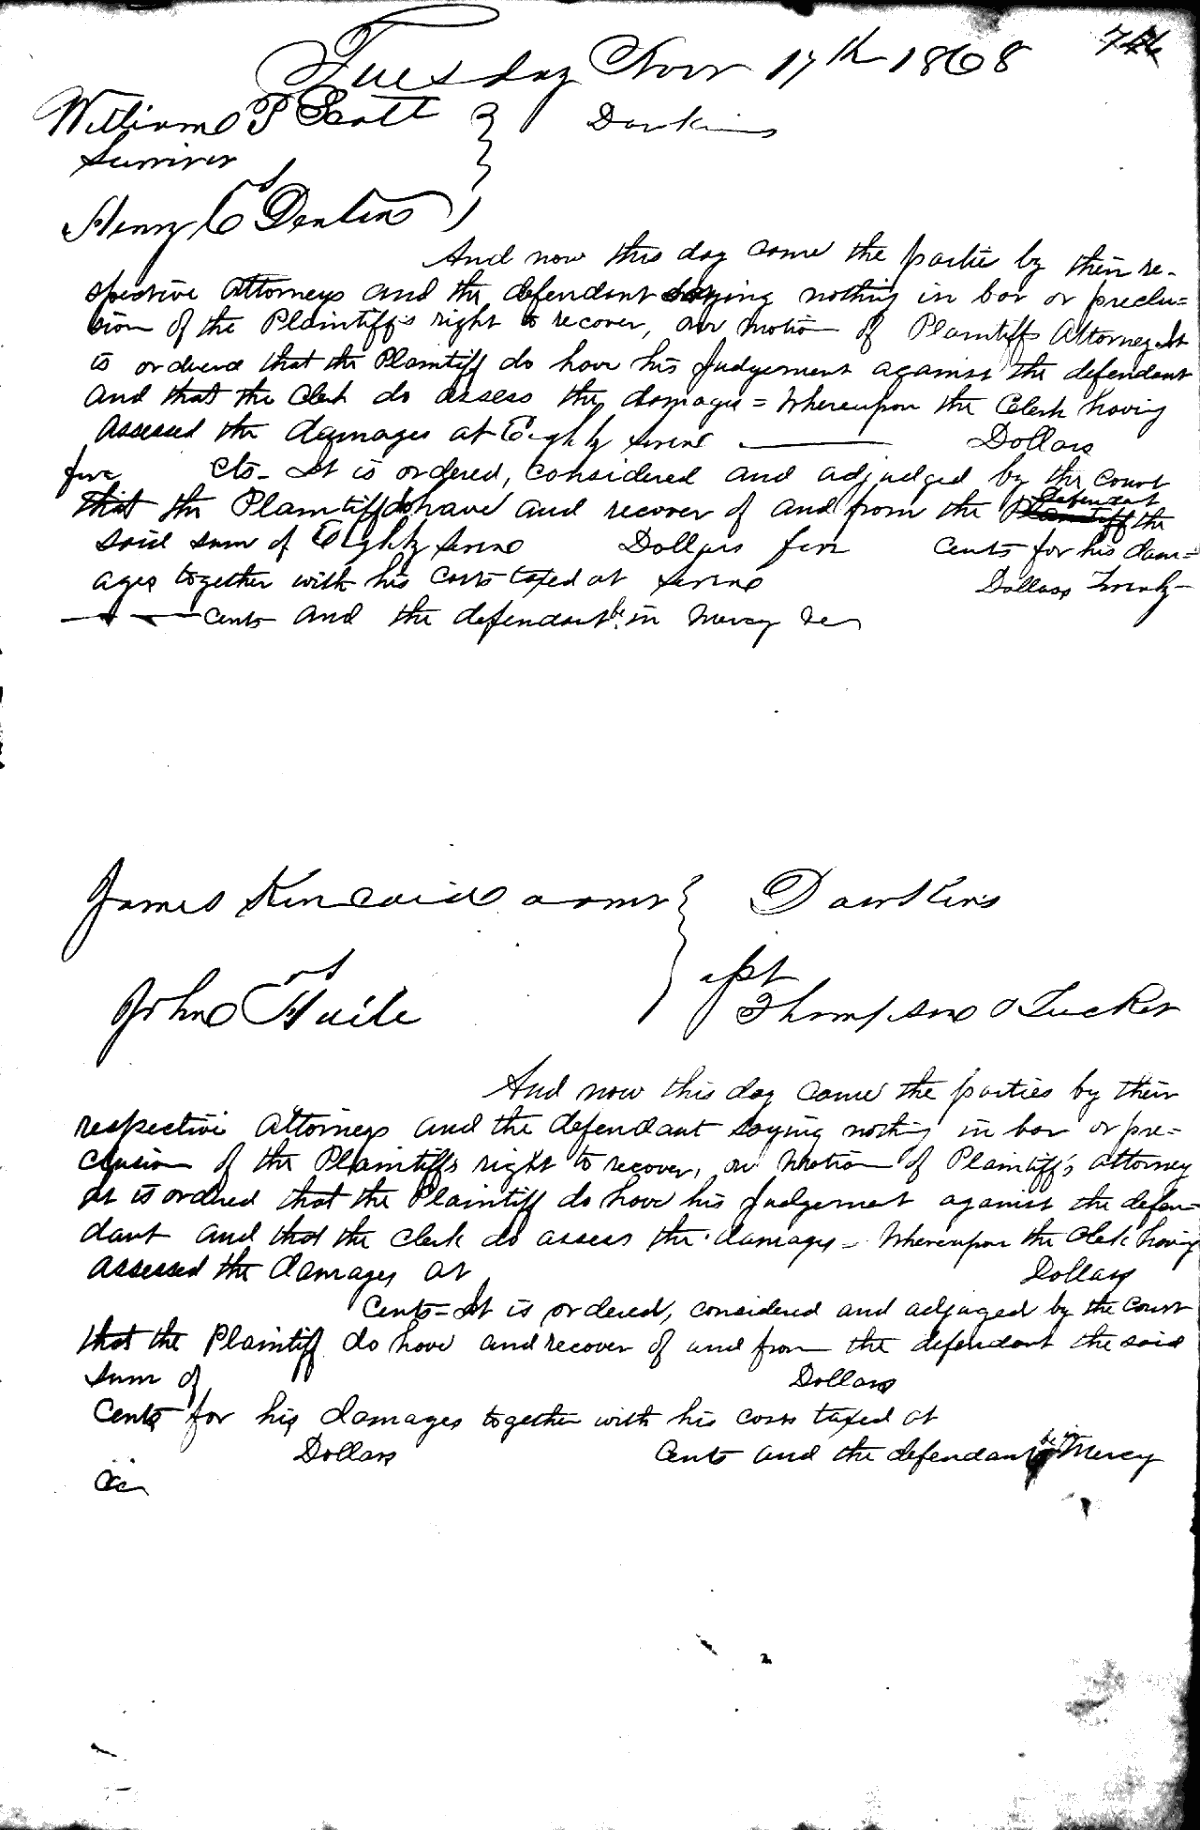 Tuesday Novr 17th 1868
William P Scott } Dawkins
Surviver
vs
Henry C Denkins
And now this day came the partie by their re-
spective Attorneys and the defendant saying nothing in bar or preclu=
sion of the Plaintiff's right to recover, on motion of Plaintiffs Attorney It
is ordered that the Plaintiff do have his Judgement against the defendant
And that the Clerk do assess the damages = Whereupon the Clerk having
Assessed the damages at Eighty seven Dollars
five cts- It is ordered, considered and adjudged by the court
that the Plaintiff do have and recover of and from the Plaintiff defendant the
said sum of Eighty seven Dollars five Cents for his dam=
ages together with his costs taxed at seven Dollars Twenty-
cents and the defendant be in mercy &c
James Kincaid admr } Dawkins
vs
pt
John Faile Thompson & Tucker
And now this day came the parties by their
respective Attorneys and the defendant saying nothing in bar or pre=
clusion of the Plaintiffs right to recover, on motion of Plaintiff's attorney
it is ordered that the Plaintiff do have his Judgement against the defen=
dant and that the clerk do assess the damages - Whereupon the Clerk having
assessed the damages at Dollars
Cents - It is ordered, considered and adjudged by the court
that the Plaintiff do have and recover of and from the defendant the said
sum of Dollars
Cents for his damages together with his costs taxed at
Dollars Cents and the defendant be in Mercy
&c